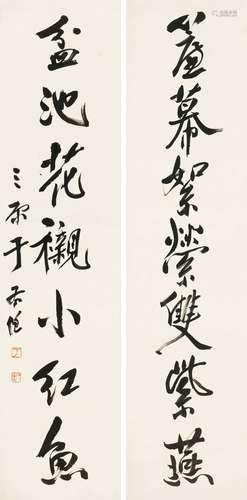 簾幕絮縈雙紫燕
盆池花襯小紅魚
三原于右任